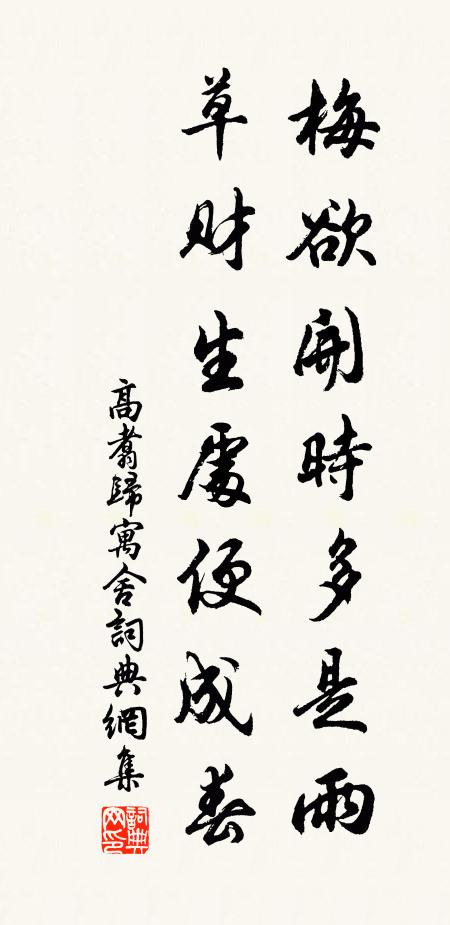 梅欲開時多是雨
草财生處便成春
高翥歸寓舍詞典網集
詞典
网印